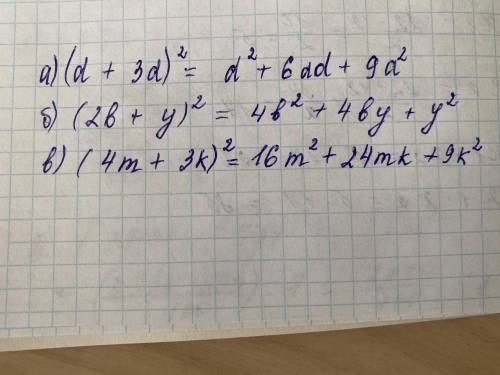 а) (d + 3d)² = d² + 6dd + 9d²
б) (2в + у)² = 4в² + 4ву + у²
в) (4m + 3k)² = 16m² + 24mk + 9k²